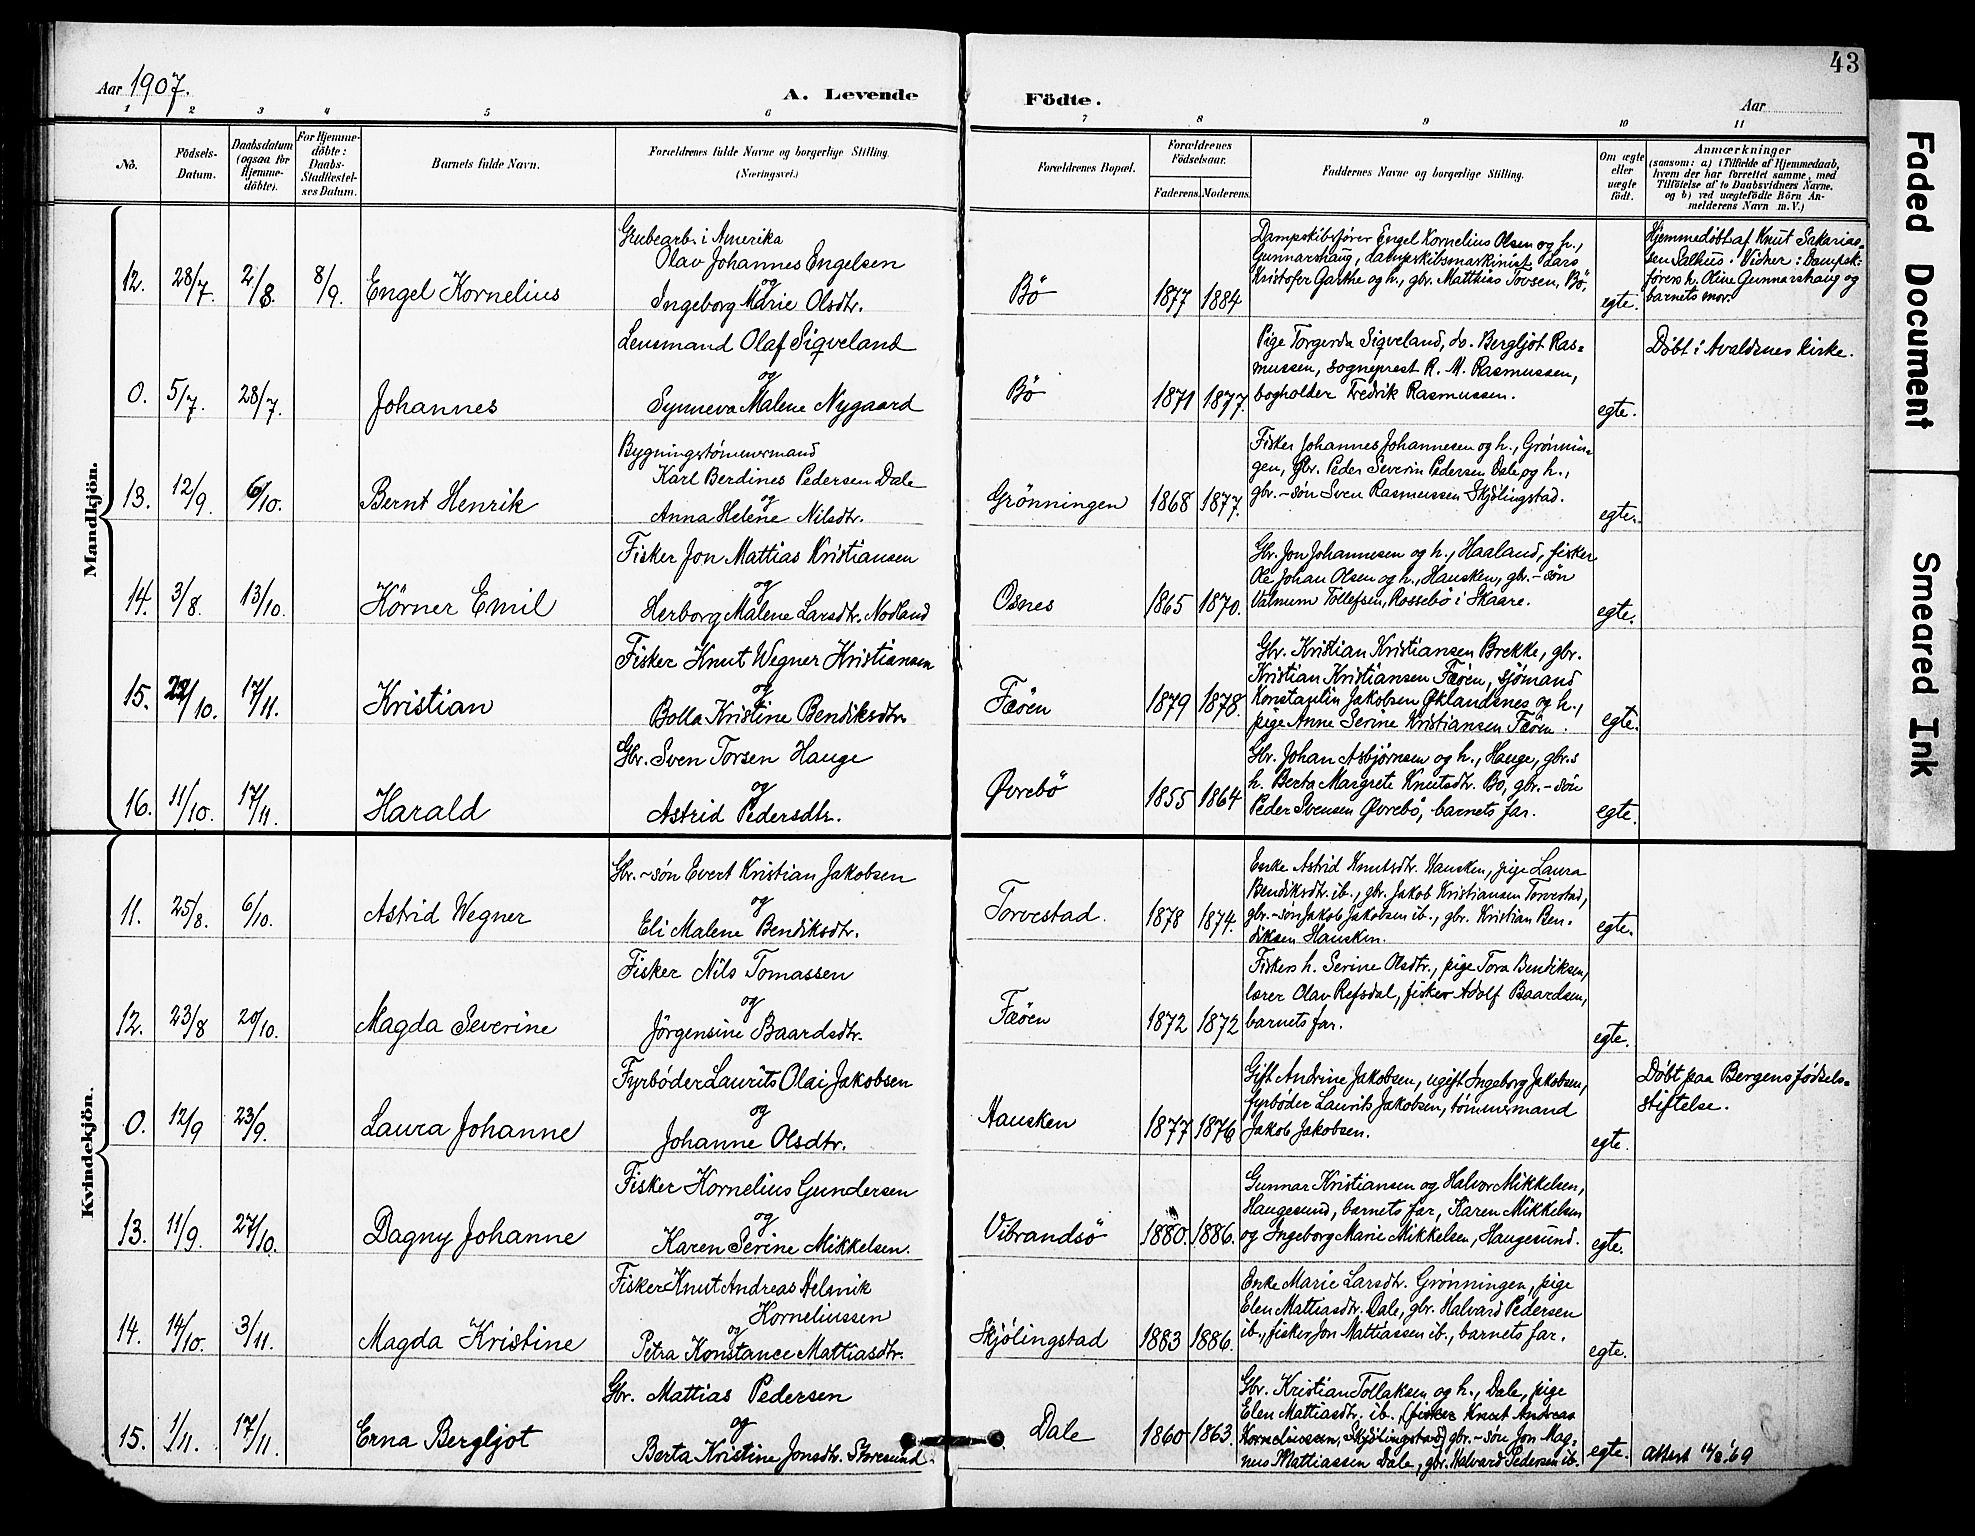 43
Aar 1907.
A. Levende
Födte.
Aar
1 2 3 4 5 6 7 8 9 10 11
No.
Födsels-
Datum.
Daabsdatum
(ogsaa for
Hjemme-
döbte).
For Hjemme-
döbte:
Daabs-
Stadfæstel-
ses Datum.
Barnets fulde Navn.
Forældrenes fulde Navne og borgerlige Stilling.
(Næringsvei.)
Forældrenes Bopæl.
Forældrenes
Födselsaar.
Faderens. Moderens.
Faddernes Navne og borgerlige Stilling.
Om ægte
eller
uægte
födt.
Anmærkninger
(saasom: a) i Tilfælde af Hjemmedaab,
hvem der har forrettet samme, med
Tilföielse af to Daabsvidners Navne.
og b) ved uægtefödte Börn An-
melderens Navn m. V.)
Mandkjön.
12. 28/7. 2/8. 8/9. Engel Kornelius
Grubearb. i Amerika
Olav Johannes Engelsen
og
Ingeborg Marie Olsdtr.
Bö 1877 1884
Dampskibsfører Engel Kornelius Olsen og h.,
Gunnarshaug, dampskibsmaskinist Lars
Kristofer Garthe og h., gbr. Matthias Tovsen, Bö.
egte.
Hjemmedøbt af Knut Sakarias-
sen Salhus. Vidner: Dampsk.-
førers h. Oline Gunnarshaug og
barnets mor.
0. 5/7. 28/7. Johannes
Lensmand Olaf Sigveland
og
Synneva Malene Nygaard
Bö 1871 1877.
Pige Torgerda Sigveland, do. Bergljot Ras-
mussen, sogneprest R. M. Rasmussen,
bogholder Fredrik Rasmussen.
egte.
Døbt i Avaldsnes kirke.
13. 12/9. 6/10. Bernt Henrik
Bygningstømmermand
Karl Berdines Pedersen Dale
og
Anna Helene Nilsdtr.
Grönningen 1868 1877.
Fisker Johannes Johannesen og h., Grønnin-
gen, Gbr. Peder Severin Pedersen Dale og h.,
gbr.-søn Sven Rasmussen Skjölingstad.
egte.
14. 3/8. 13/10. Körner Emil
Fisker Jon Mattias Kristiansen
og
Herborg Malene Larsdtr. Nodland
Osnes 1865 1870.
Gbr. Jon Johannesen og h., Haaland, fisker
Ole Johan Olsen og h., Hausken, gbr.-søn
Valmum Tollefsen, Rossebö i Skaare.
egte.
15. 22/10. 17/11. Kristian
Fisker Knut Wegner Kristiansen
og
Bolla Kristine Bendiksdtr.
Fæöen 1879 1878.
Gbr. Kristian Kristiansen Brekke, gbr.
Kristian Kristiansen Fæøen, sjömand
Konstantin Jakobsen Øklandsnes og h.,
pige Anne Serine Kristiansen Fæøen.
egte.
16. 11/10. 17/11. Harald
Gbr. Sven Torsen Hauge
og
Astrid Pedersdtr.
Øvrebö 1855 1864
Gbr. Johan Asbjørnsen og h., Hauge, gbr.s
h. Berta Margrete Knutsdtr. Bö, gbr.-søn
Peder Svensen Øvrebö, barnets far.
egte.
Kvindekjön.
11. 25/8. 6/10. Astrid Wegner
Gbr.-søn Evert Kristian Jakobsen
og
Eli Malene Bendiksdtr.
Torvestad. 1878 1874.
Enke Astrid Knutsdtr. Hausken, pige Laura
Bendiksdtr. ib., gbr. Jakob Kristiansen Torvestad,
gbr.-søn Jakob Jakobsen ib., gbr. Kristian Ben-
diksen Hausken.
egte.
12. 23/8 20/10. Magda Severine
Fisker Nils Tomassen
og
Jörgensine Baardsdtr.
Fæöen 1872 1872
Fiskers h. Serine Olsdtr., pige Tora Bendiksen,
lærer Olav Refsdal, fisker Adolf Baardsen,
barnets far.
egte.
0. 12/9 23/9. Laura Johanne
Fyrbøder Laurits Olai Jakobsen
og
Johanne Olsdtr.
Hausken 1877 1876
Gift Andrine Jakobsen, ugift Ingeborg Jakobsen,
fyrbøder Laurits Jakobsen, tömmermand
Jakob Jakobsen.
egte.
Døbt paa Bergens fødsels-
stiftelse.
13. 11/9. 27/10. Dagny Johanne
Fisker Kornelius Gundersen
og
Karen Serine Mikkelsen.
Vibrandsö 1880. 1886.
Gunnar Kristiansen og Halvor Mikkelsen,
Haugesund, barnets far, Karen Mikkelsen
og Ingeborg Marie Mikkelsen, Haugesund.
egte.
14. 14/10. 3/11. Magda Kristine
Fisker Knut Andreas Delsvik
Korneliussen
og
Petra Konstance Mattiasdtr.
Skjölingstad 1883 1886.
Enke Marie Larsdtr. Grønningen, pige
Elen Mattiasdtr. Dale, gbr. Halvard Pedersen
ib., fisker Jon Mattiassen ib., barnets far.
egte.
15. 1/11. 17/11. Erna Bergljot
Gbr. Mattias Pedersen
og
Berta Kristine Jonsdtr. Storesund.
Dale 1860 1863.
Gbr. Kristian Tollaksen og h., Dale, pige
Elen Mattiasdtr. ib., (fisker Knut Andreas
Korneliussen, Skjölingstad) gbr.-søn Jon Mag-
nus Mattiassen Dale, gbr. Halvard Pedersen ib.
egte.
Attest 14/8 '69
Faded Document
Smeared Ink